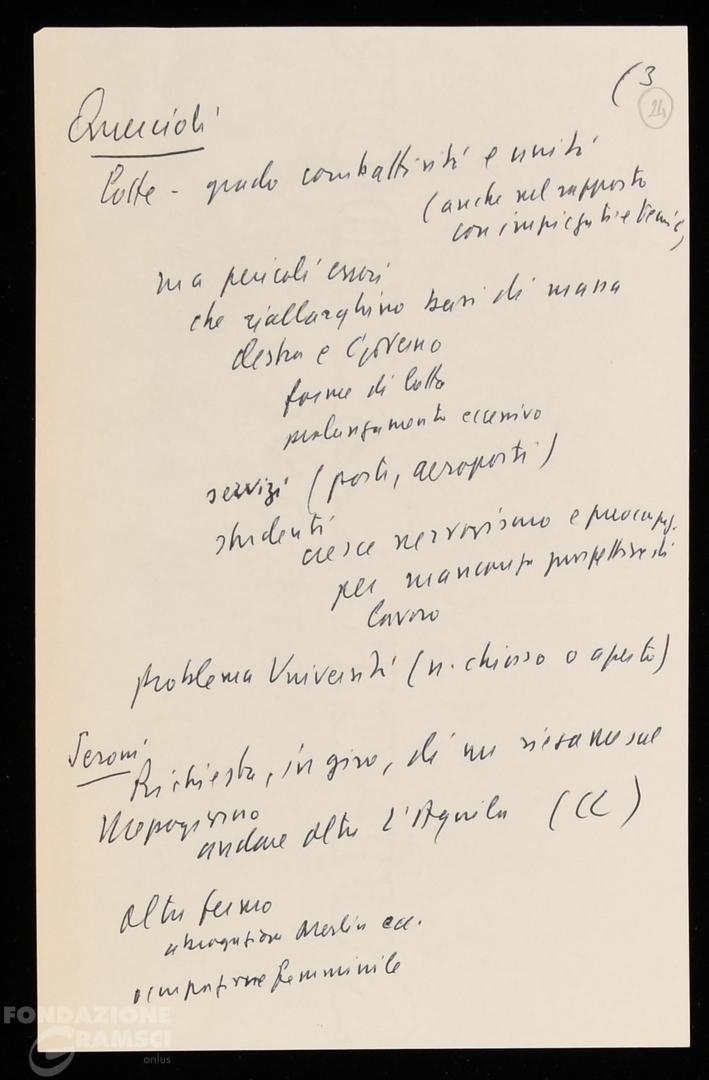 (3
24
Quercioli
Lotte - grado combattività e unità
(anche nel rapporto
con impiegati e tecnici)
ma pericoli errori
che riallarghino basi di massa
destra e governo
forme di lotta
prolungamento eccessivo
servizi (porti, aeroporti)
studenti
cresce nervosismo e preoccup.
per mancanza prospettive di
lavoro
problema Università (n. chiuso o aperto)
Seroni
Richiesta, in giro, di un riesame sul
Mezzogiorno
andare oltre L'Aquila (CC)
altro
abrogazione Merlin ecc.
occupazione femminile
FONDAZIONE
GRAMSCI
onlus